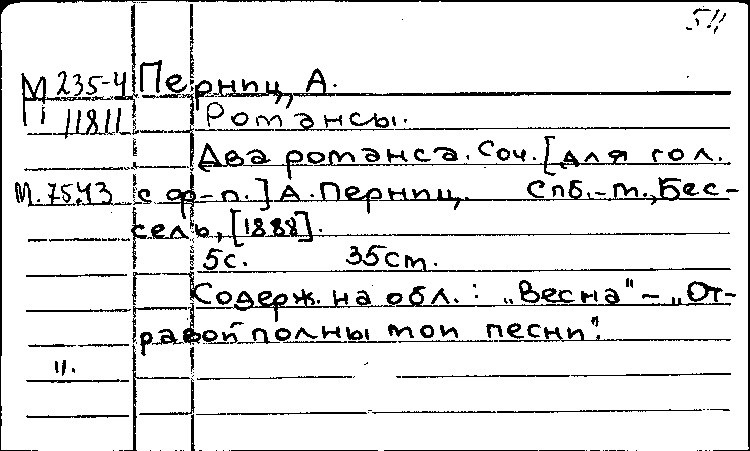 511
М 235-4 Перниц, А.
П 11811 Романсы.
Два романса. Соч. [для гол.
М. 7543 с ф-п.] А. Перниц. Спб.-м., Бес-
сель, [1888].
5с. 35см.
Содерж. на обл.: „Весна" – „От-
равой полны мои песни".
11.